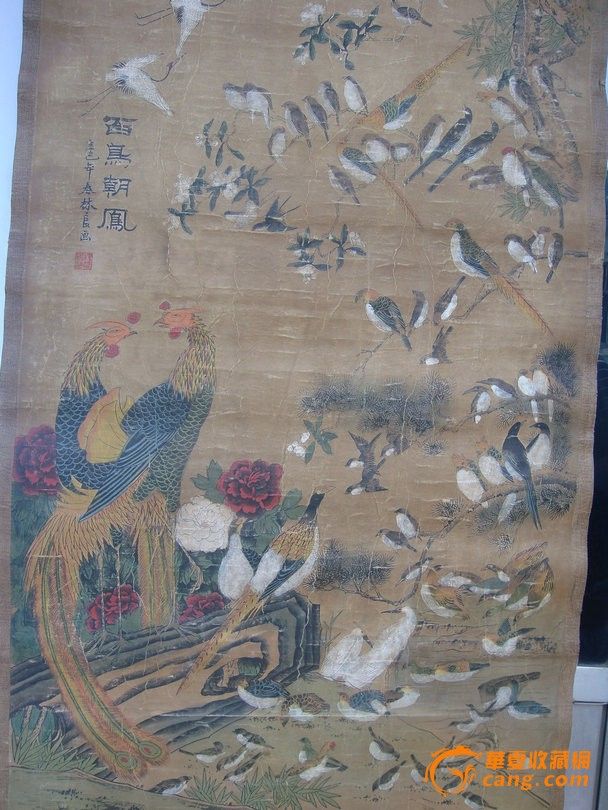 百鳥朝鳳
辛巳年春林良画
華夏收藏网
cang.com